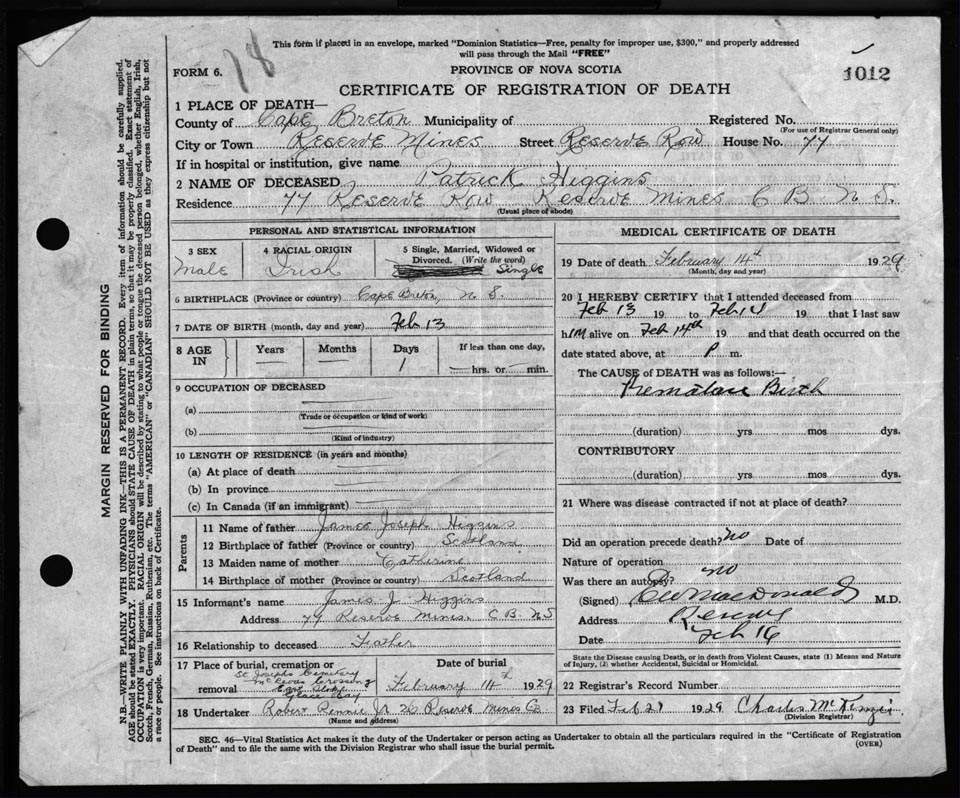 This form if placed in an envelope, marked "Dominion Statistics—Free, penalty for improper use, $300," and properly addressed
will pass through the Mail "FREE"
78
FORM 6.
PROVINCE OF NOVA SCOTIA
1012
CERTIFICATE OF REGISTRATION OF DEATH
1 PLACE OF DEATH—
County of Cape Breton Municipality of Registered No.
(For use of Registrar General only)
City or Town Reserve Mines Street Reserve Row House No. 77
If in hospital or institution, give name
2 NAME OF DECEASED Patrick Higgins
Residence 77 Reserve Row Reserve Mines C B N S.
(Usual place of abode)
PERSONAL AND STATISTICAL INFORMATION
3 SEX
Male
4 RACIAL ORIGIN
Irish
5 Single, Married, Widowed or
Divorced. (Write the word)
Single
6 BIRTHPLACE (Province or country) Cape Breton, N S.
7 DATE OF BIRTH (month, day and year) Feb 13
8 AGE IN
Years
Months
Days
1
If less than one day,
hrs. or min.
9 OCCUPATION OF DECEASED
(a)
(Trade or occupation or kind of work)
(b)
(Kind of industry)
10 LENGTH OF RESIDENCE (in years and months)
(a) At place of death
(b) In province
(c) In Canada (if an immigrant)
Parents
11 Name of father James Joseph Higgins
12 Birthplace of father (Province or country) Scotland
13 Maiden name of mother Catherine
14 Birthplace of mother (Province or country) Scotland
15 Informant's name James J. Higgins
Address 77 Reserve Mines. C B. NS
16 Relationship to deceased Father
17 Place of burial, cremation or
removal
St Josephs Cemetery
Crossing
Glace Bay
Date of burial
February 14th 1929
18 Undertaker Robert Rennie Jr Reserve Mines CB
(Name and address)
MEDICAL CERTIFICATE OF DEATH
19 Date of death February 14th 1929
(Month, day and year)
20 I HEREBY CERTIFY that I attended deceased from
Feb 13 19 to Feb 14 19 that I last saw
him alive on Feb 14th 19 and that death occurred on the
date stated above, at P m.
The CAUSE of DEATH was as follows:—
Premature Birth
(duration) yrs mos dys.
CONTRIBUTORY
(duration) yrs. mos dys.
21 Where was disease contracted if not at place of death?
Did an operation precede death? no Date of
Nature of operation
Was there an autopsy? no
(Signed) MacDonald M.D.
Address Reserve
Date Feb 16
State the Disease causing Death, or in death from Violent Causes, state (1) Means and Nature
of Injury, (2) whether Accidental, Suicidal or Homicidal.
22 Registrar's Record Number
23 Filed Feb 21 1929 Charles McKenzie
(Division Registrar)
SEC. 46—Vital Statistics Act makes it the duty of the Undertaker or person acting as Undertaker to obtain all the particulars required in the "Certificate of Registration
of Death" and to file the same with the Division Registrar who shall issue the burial permit.
(OVER)
MARGIN RESERVED FOR BINDING
N.B.—WRITE PLAINLY WITH UNFADING INK—THIS IS A PERMANENT RECORD. Every item of information should be carefully supplied.
AGE should be stated EXACTLY. PHYSICIANS should STATE CAUSE OF DEATH in plain terms, so that it may be properly classified. Exact statement of
OCCUPATION is very important. RACIAL ORIGIN will be described by stating to what people or tongue the deceased person belonged, whether English, Irish,
Scotch, French, German, Russian, Ruthenian, etc. The terms "AMERICAN" or "CANADIAN" SHOULD NOT BE USED as they express citizenship but not
a race or people. See instructions on back of Certificate.